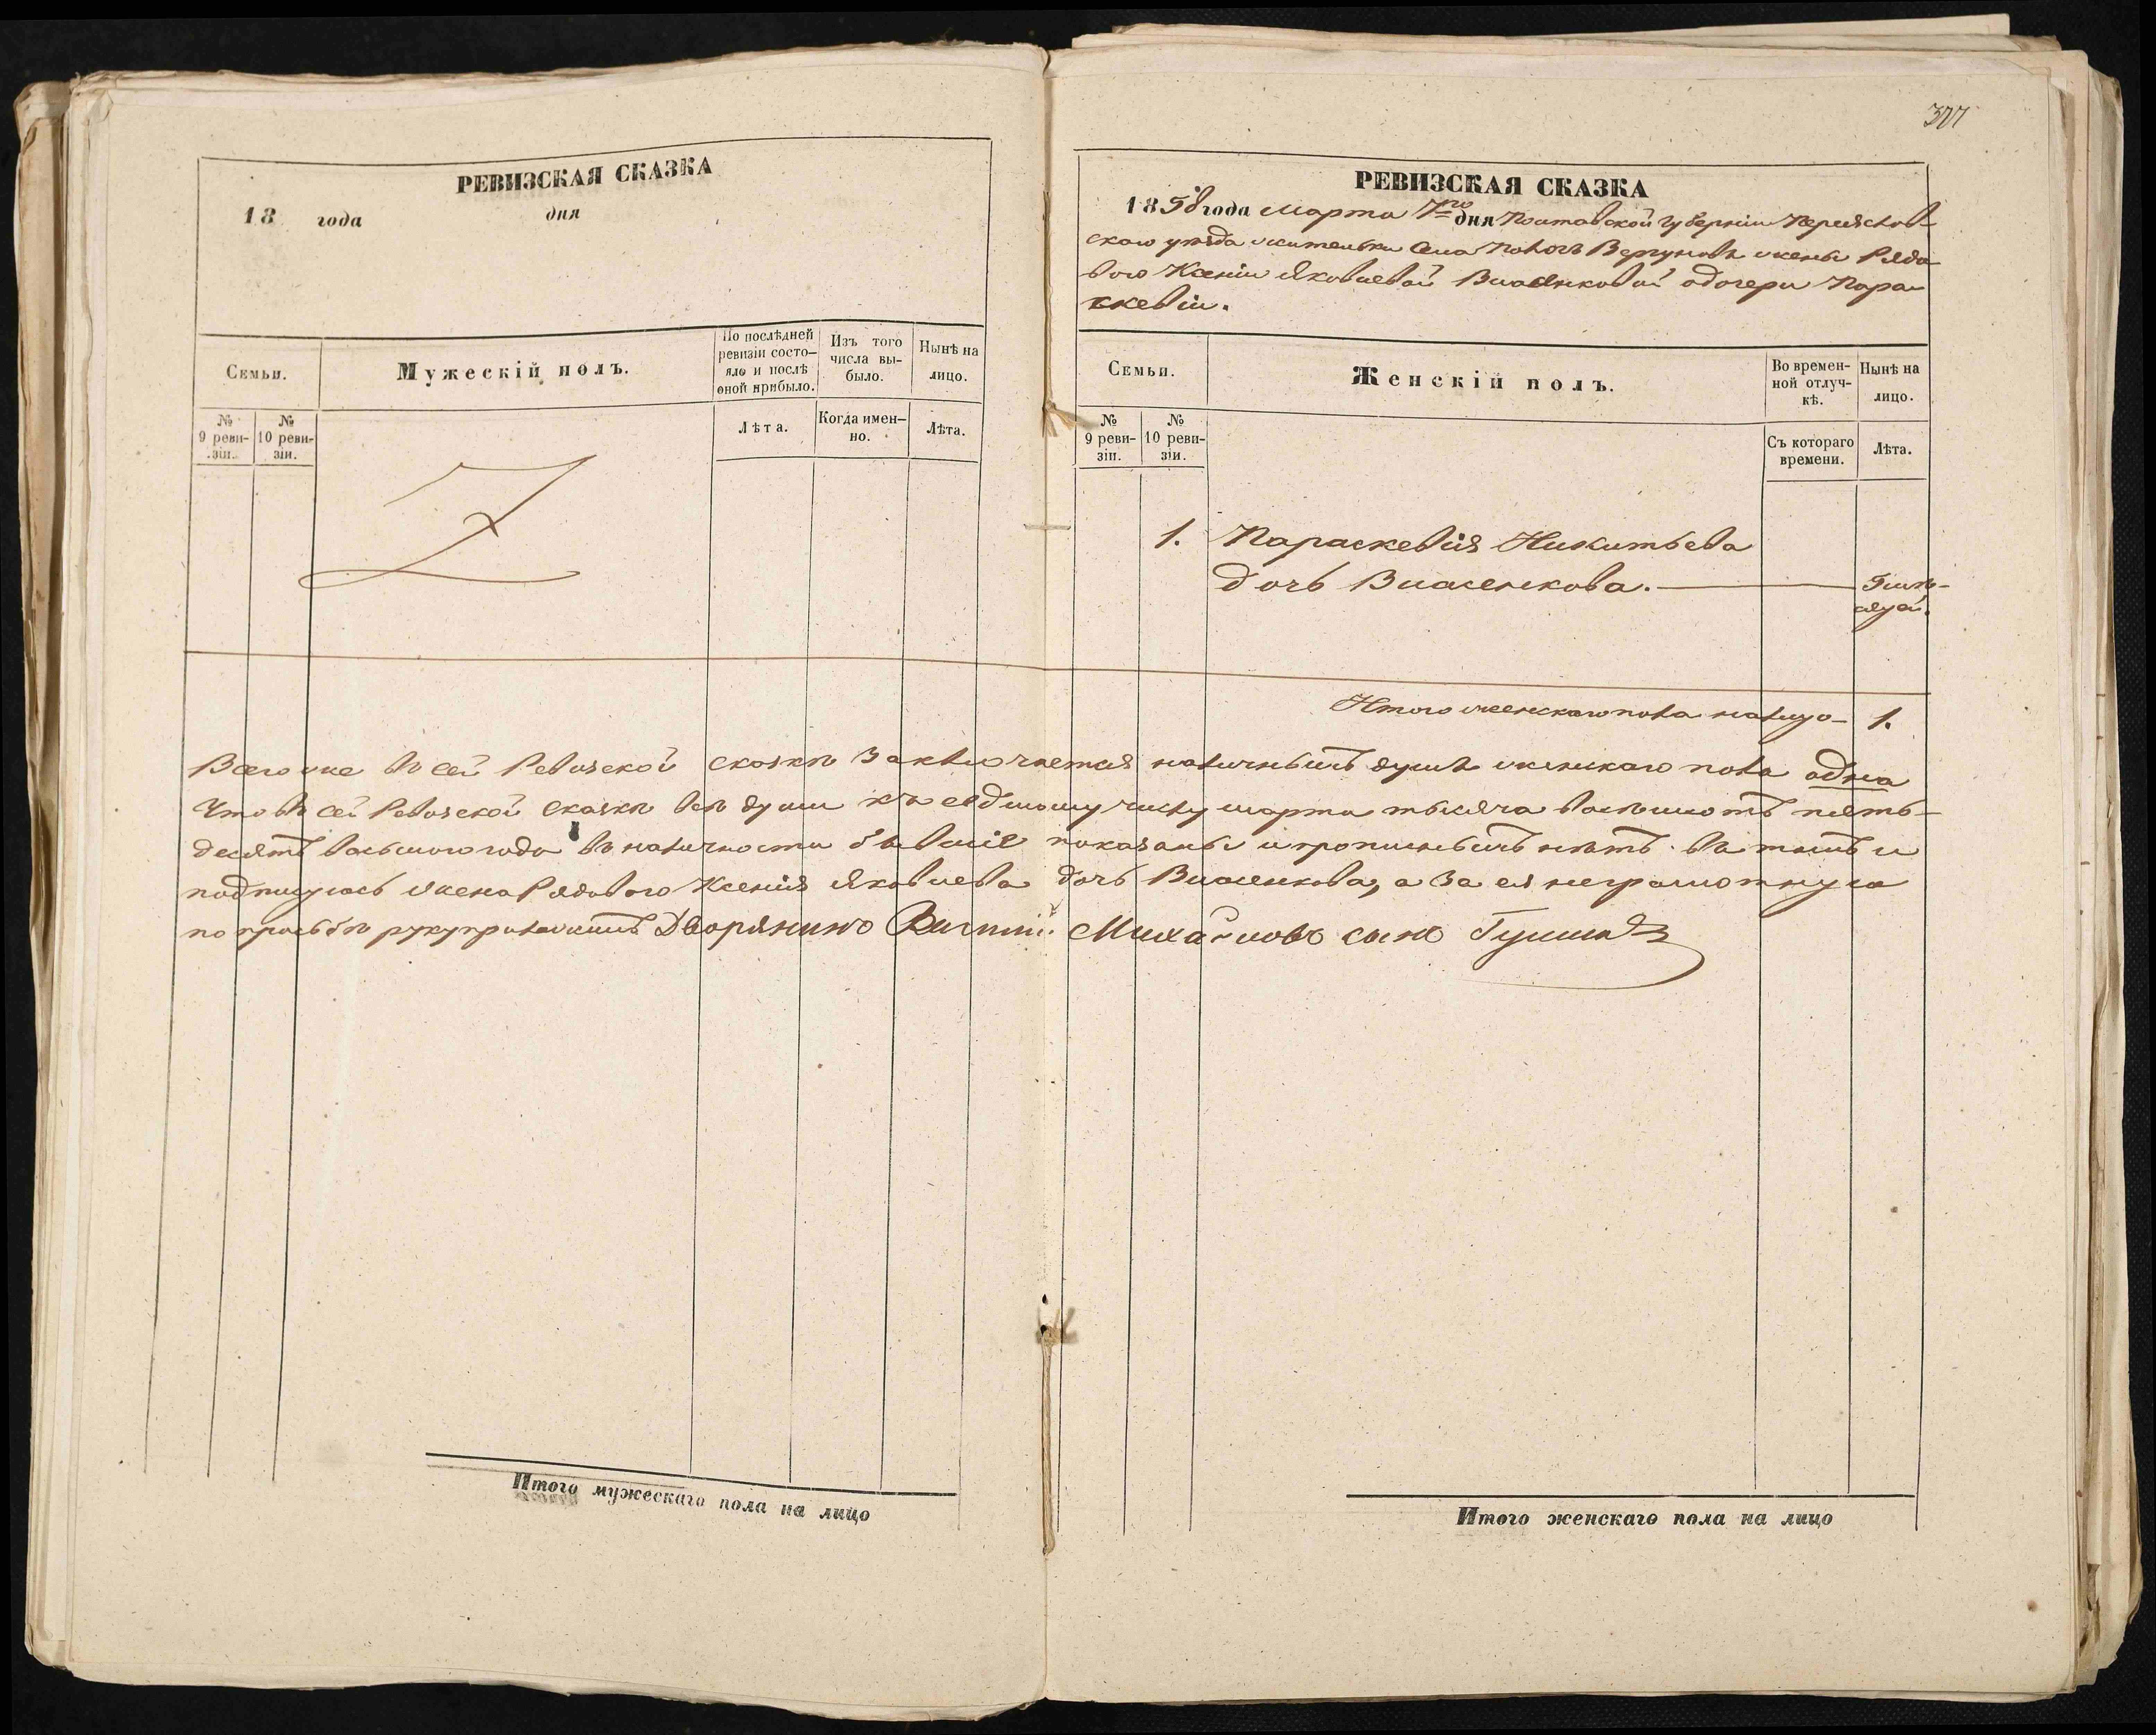 РЕВИЗСКАЯ СКАЗКА
18 года дня
Семьи.
Мужескій полъ.
По послѣдней ревизіи состояло и послѣ оной прибыло.
Изъ того числа выбыло.
Нынѣ на лицо.
№ 9 ревизіи.
№ 10 ревизіи.
Лѣта.
Когда именно.
Лѣта.
Итого мужескаго пола на лицо
377
РЕВИЗСКАЯ СКАЗКА
1858 года Марта 7го дня Полтавской губерніи Переяслов-
скаго уѣзда жительки села Вергуновъ жены Рядо-
вого Ксеніи Яковлевой Власенковой о дочери Пара-
скевіи.
Семьи.
Женскій полъ.
Во временной отлучкѣ.
Нынѣ на лицо.
№ 9 ревизіи.
№ 10 ревизіи.
Съ котораго времени.
Лѣта.
1. Параскевія Никитьева
дочь Власенкова.
Итого женскаго пола налицо 1.
Всего же въ сей Ревизской сказкѣ заключается наличныхъ душъ женскаго пола одна
Что въ сей Ревизской сказкѣ всѣ души къ седьмому числу марта тысяча восьмьсотъ пять-
десятъ восьмого года въ наличности бывшіе показаны и прописныхъ нѣтъ. Въ томъ и
подписуюсь жена Рядового Ксенія Яковлева дочь Власенкова, а за ея неграмотную
по просьбѣ Дворянинъ Михайловъ сынъ
Итого женскаго пола на лицо